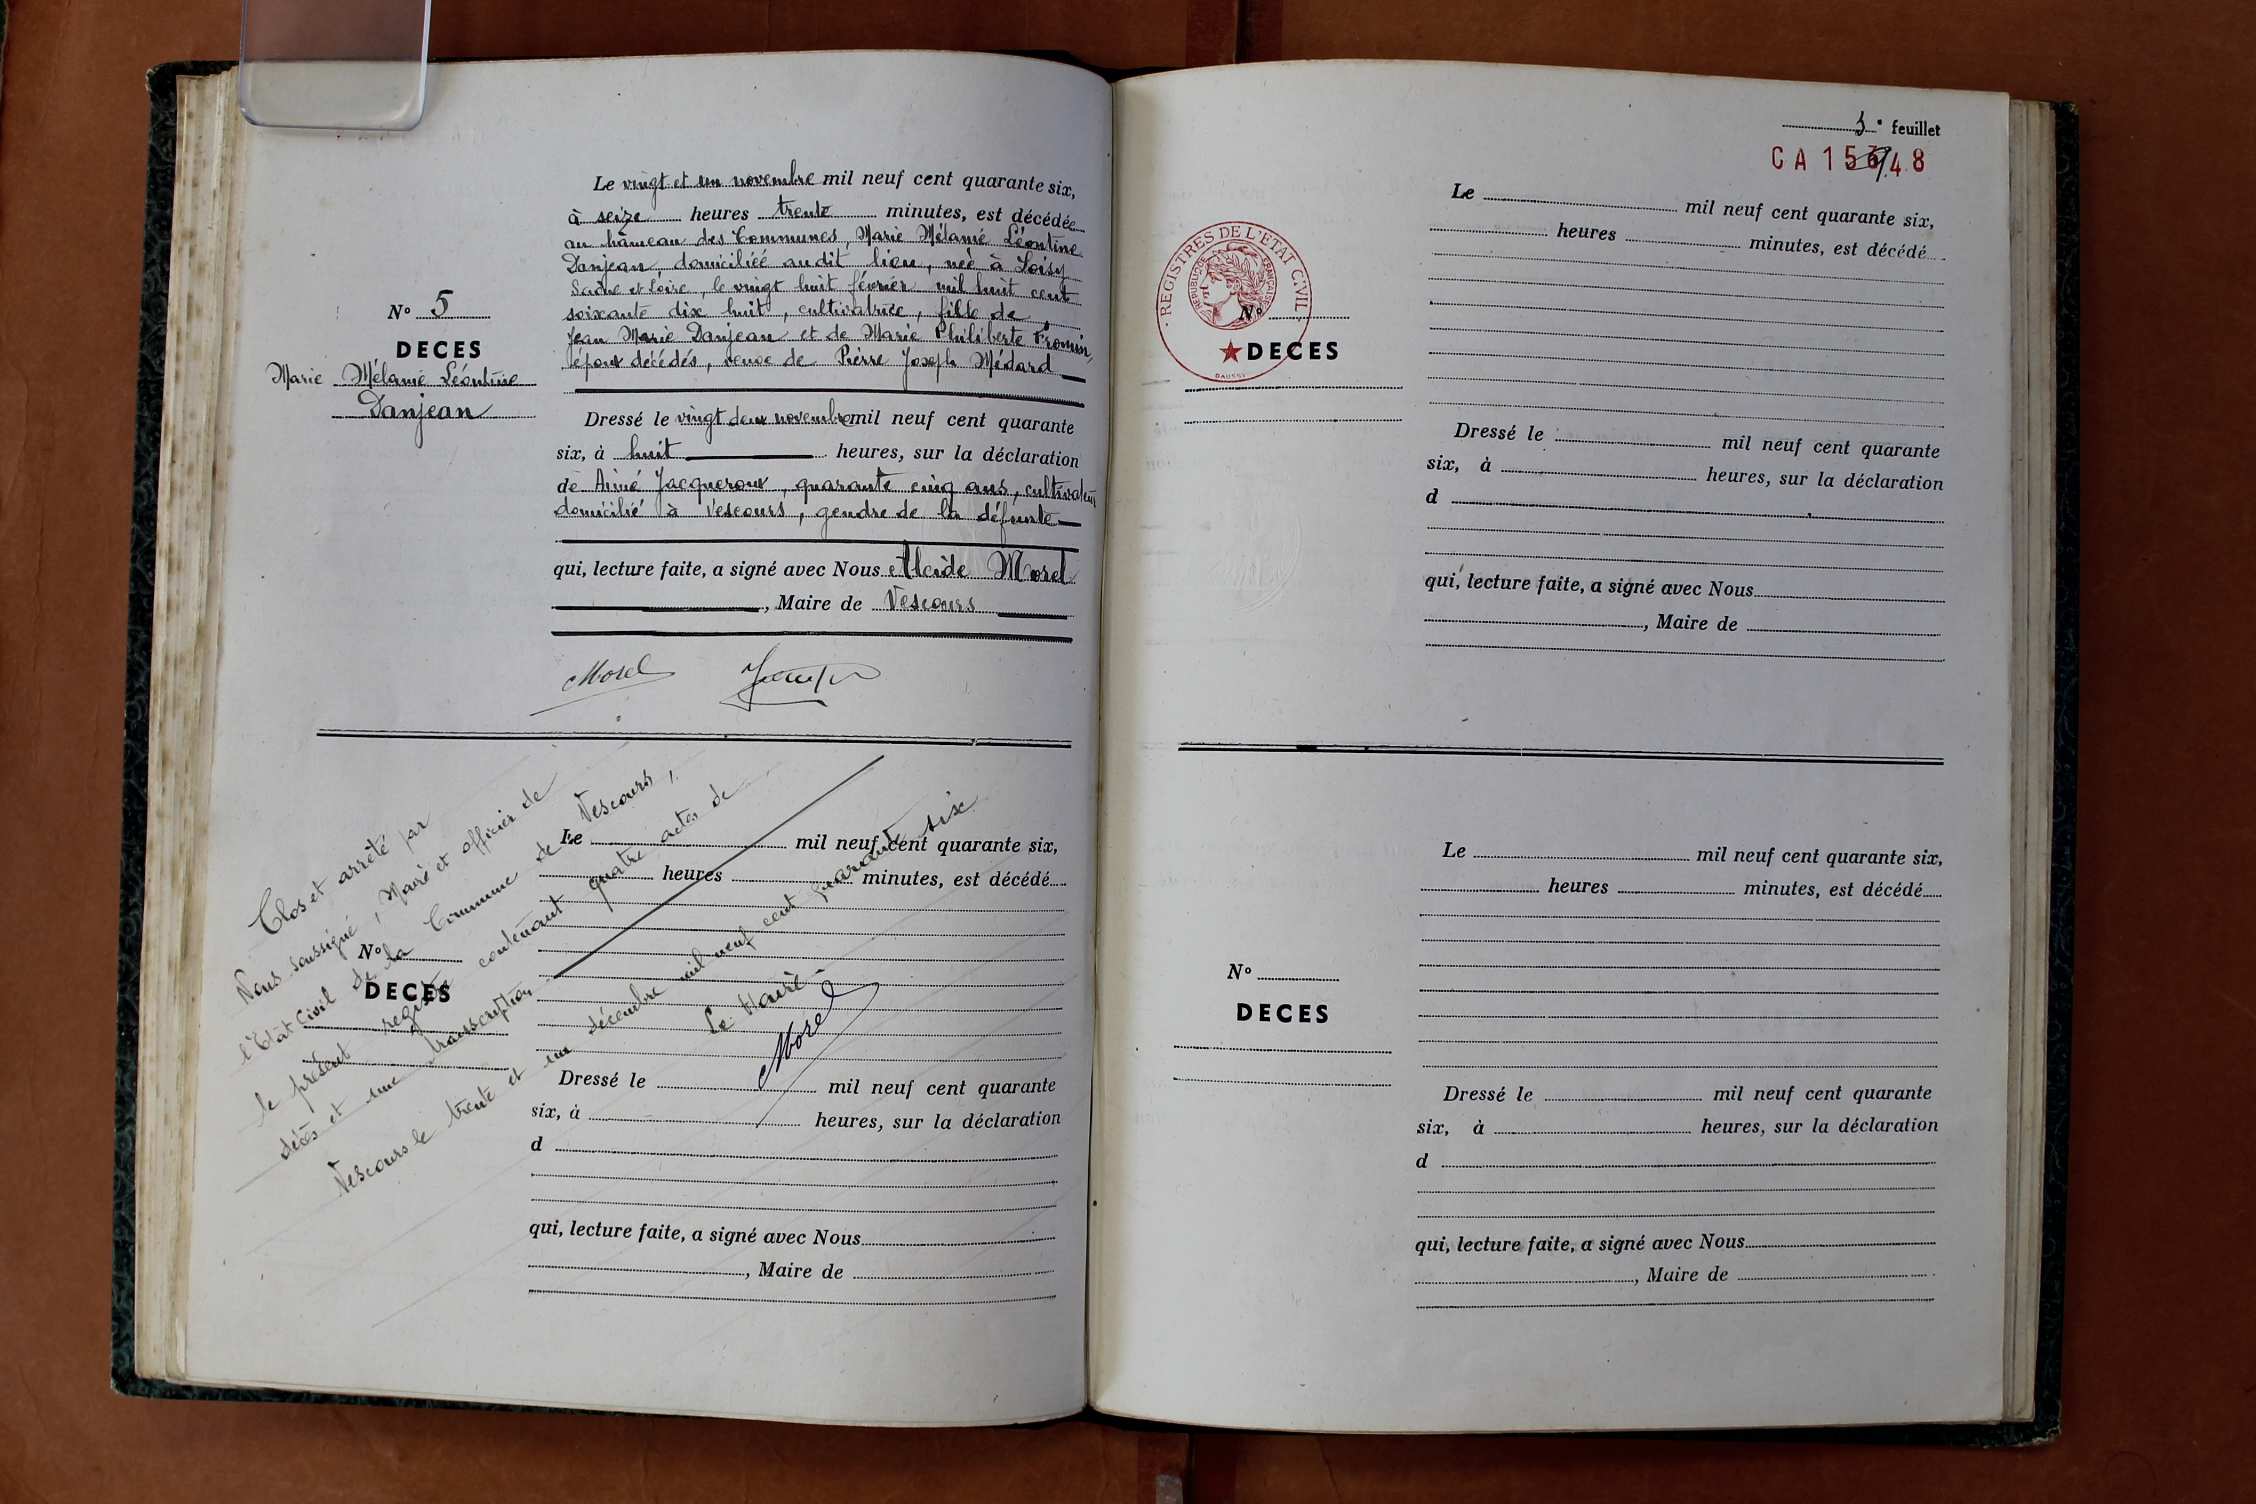 Le vingt et un novembre mil neuf cent quarante six,
à seize heures trente minutes, est décédée
au hameau des Communes, Marie Mélanie Léontine
Danjean domiciliée audit lieu, née à Loisy
Saône et Loire, le vingt huit février mil huit cent
soixante dix huit, cultivatrice, fille de
Jean Marie Danjean et de Marie Philiberte
époux décédés, veuve de Pierre Joseph Médard
N° 5
DECES
Marie Mélanie Léontine
Danjean
Dressé le vingt deux novembre mil neuf cent quarante
six, à huit heures, sur la déclaration
de Aimé Jacqueroux, quarante cinq ans, cultivateur
domicilié à Vescours, gendre de la défunte
qui, lecture faite, a signé avec Nous Alcide Morel
, Maire de Vescours
Morel
Clos et arrêté par
Nous soussigné, Maire et officier de
l'Etat Civil de la Commune de Vescours,
le présent registre contenant quatre actes de
décès et une transcription
Vescours le trente et un décembre mil neuf cent quarante six
Le Maire
Morel
Le mil neuf cent quarante six,
heures minutes, est décédé
N°
DECES
Dressé le mil neuf cent quarante
six, à heures, sur la déclaration
d
qui, lecture faite, a signé avec Nous
, Maire de
feuillet
CA 15 48
REGISTRES DE L'ETAT CIVIL
REPUBLIQUE FRANCAISE
DAUSSY
Le mil neuf cent quarante six,
heures minutes, est décédé
N°
DECES
Dressé le mil neuf cent quarante
six, à heures, sur la déclaration
d
qui, lecture faite, a signé avec Nous
, Maire de
Le mil neuf cent quarante six,
heures minutes, est décédé
N°
DECES
Dressé le mil neuf cent quarante
six, à heures, sur la déclaration
d
qui, lecture faite, a signé avec Nous
, Maire de